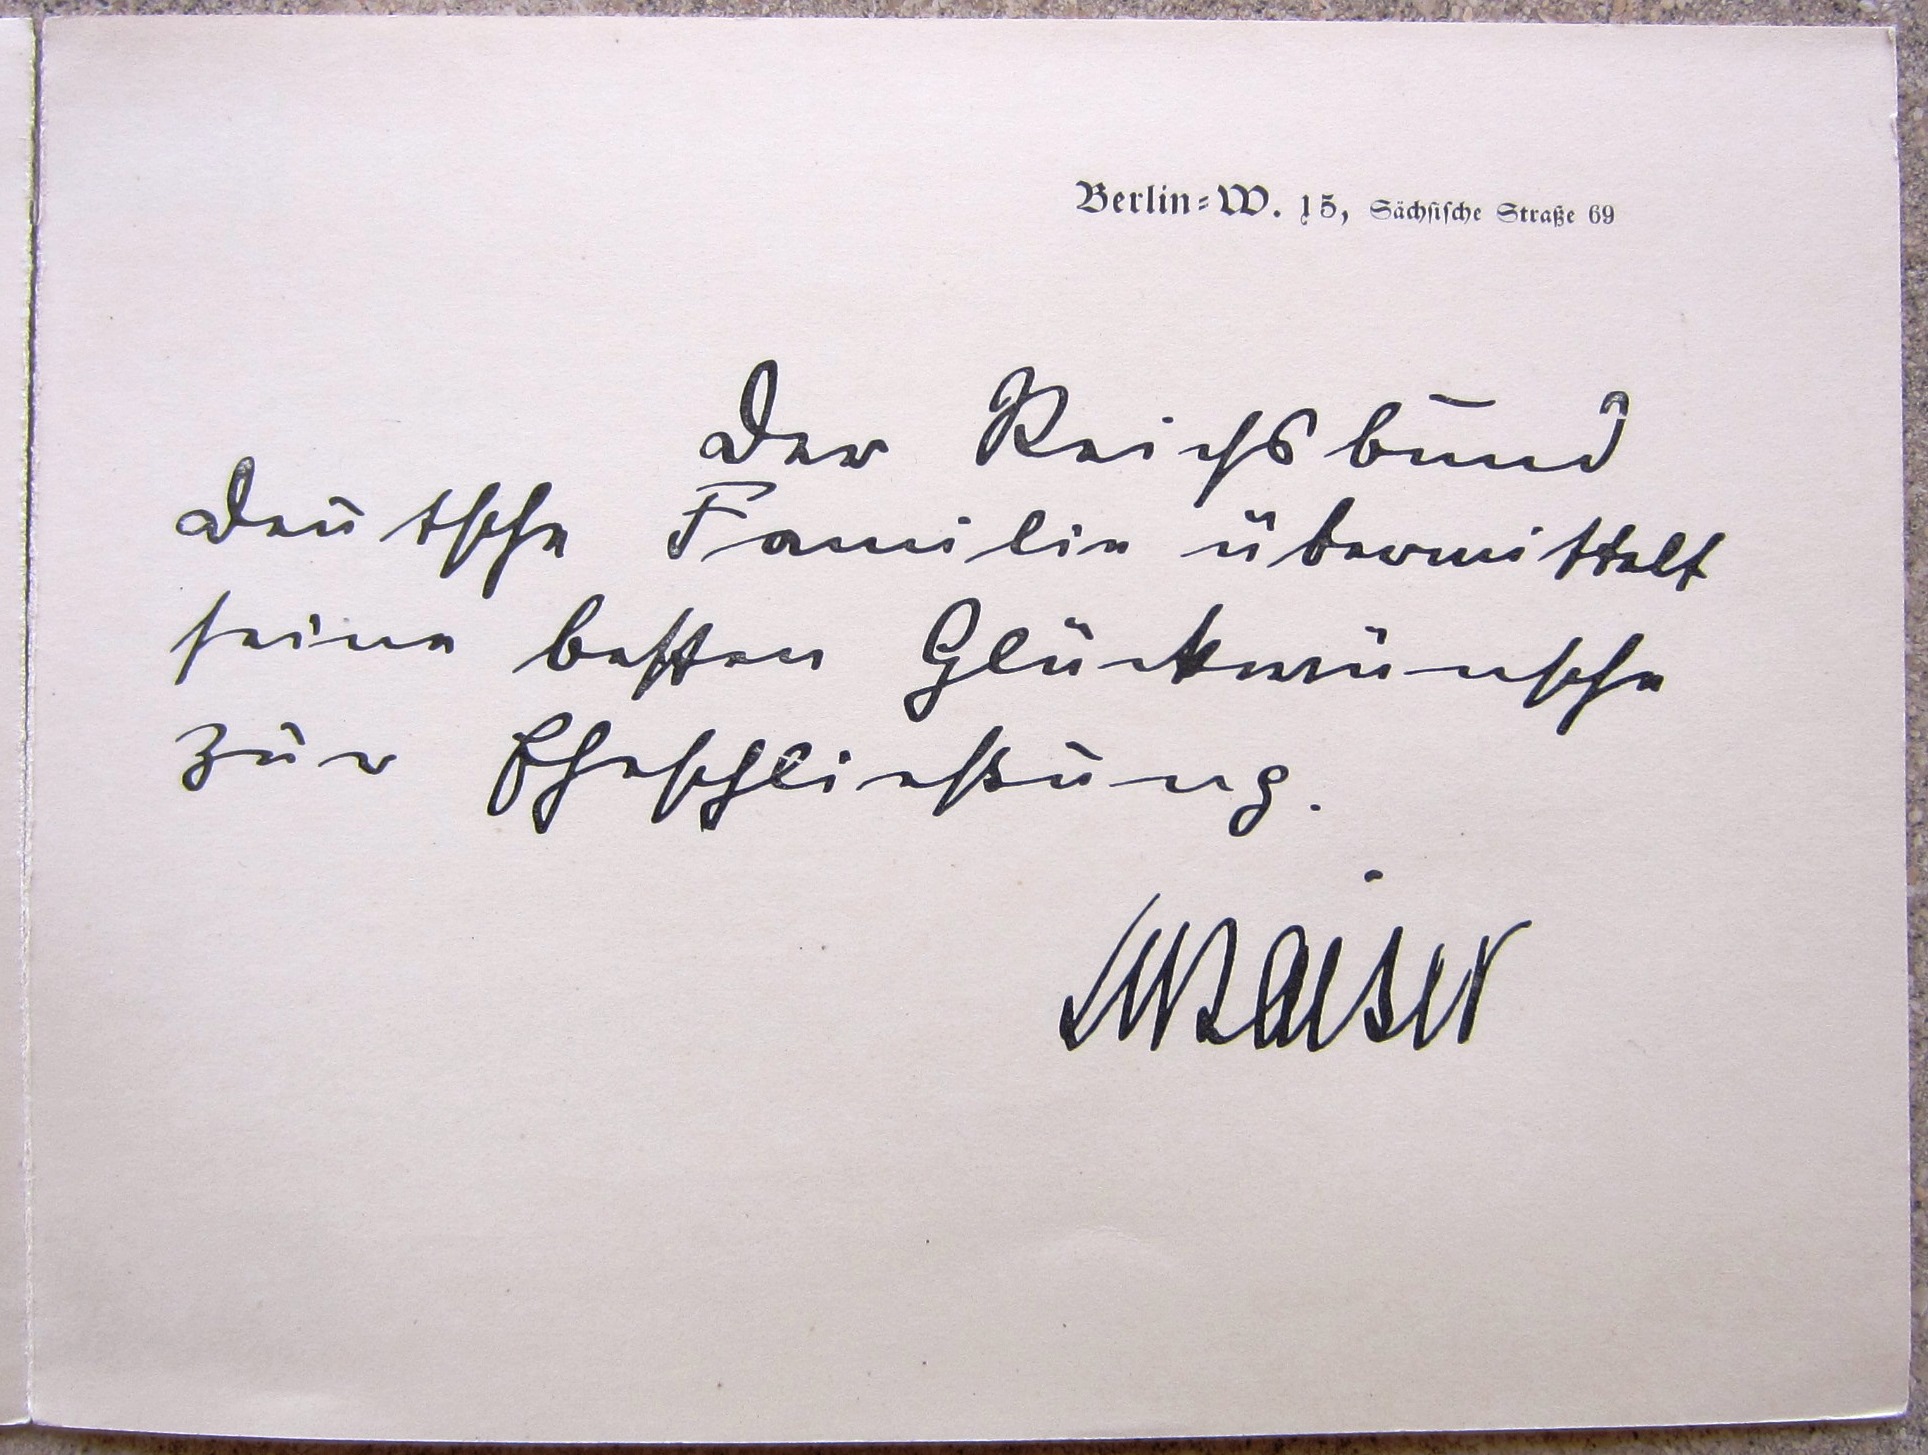 Berlin-W. 15, Sächsische Straße 69
Der Reichsbund
Deutsche Familie übermittelt
seine besten Glückwünsche
zur Eheschließung.